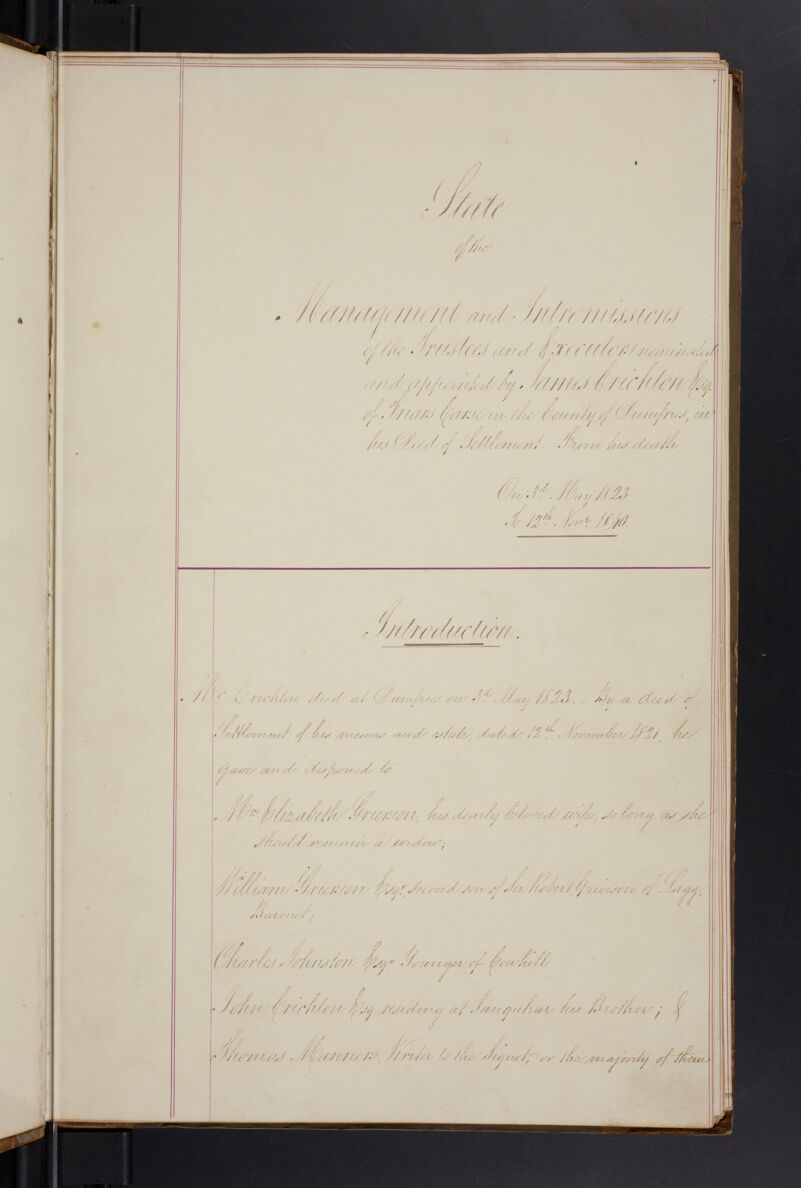 State
of the
Management and Intromissions
of the Trustees and Executors nominated
and appointed by James Crichton Esq.
of Friars Carse in the County of Dumfries, in
his Deed of Settlement - From his death
On 3d. May 1823
To 12th. Novr. 1840.
Introduction.
Mr Crichton died at Dumfries on 3d. May 1823 - By a deed of
Settlement of his means and estate, dated 12th. November 1821, he
gave and disponed to
Mrs Elizabeth Grierson, his dearly beloved wife, so long as she
should remain a widow;
William Grierson Esqr. second son of Sir Robert Grierson of Lagg,
Baronet;
Charles Johnston Esqr. Younger of Cowhill
John Crichton Esq residing at Sanquhar his Brother; &
Thomas Manners, Writer to the Signet, or the majority of them